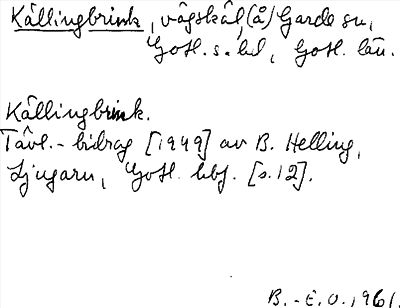 Källingbrink, vägskäl, (å) Garde sn,
Gotl. s. hd, Gotl. län.
Källingbrink.
Tävl.-bidrag [1949] av B. Helling,
Ljugarn, Gotl. hbf. [s. 12].
B.-E.O. 1961.